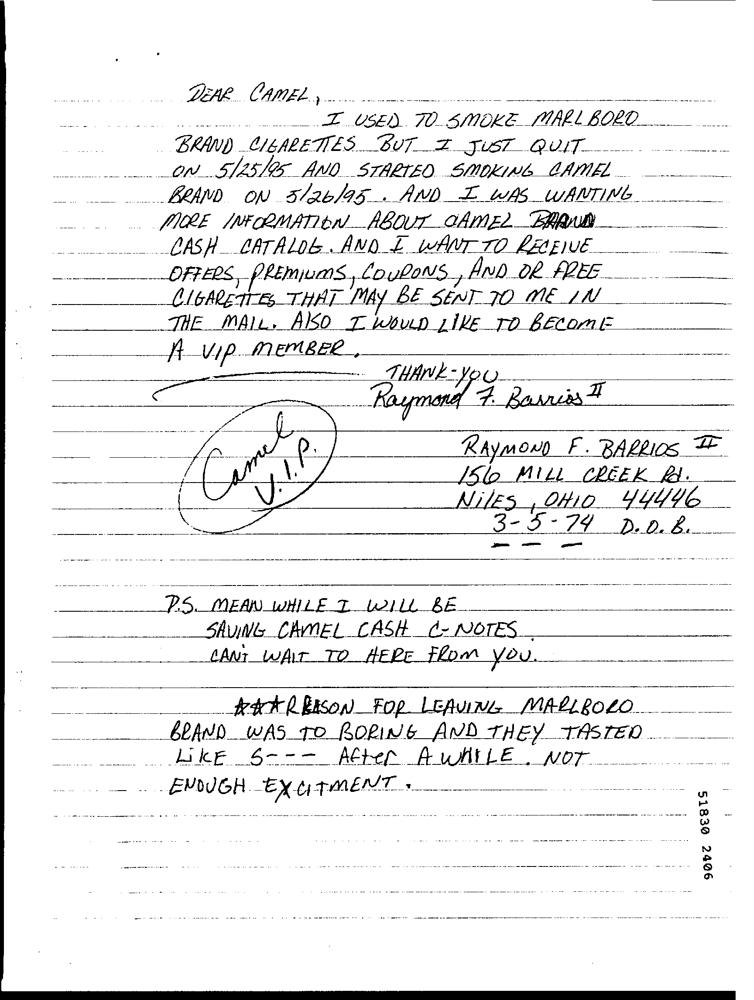 DEAR CAMEL,
I USED TO SMOKE MARLBORO
BRAND CIGARETTES BUT I JUST QUIT
ON 5/25/95 AND STARTED SMOKING CAMEL
BRAND ON 5/26/95. AND I WAS WANTING
MORE INFORMATION ABOUT CAMEL
CASH CATALOG. AND I WANT TO RECEIVE
OFFERS, PREMIUMS, COUPONS, AND OR FREE
CIGARETTES THAT MAY BE SENT TO ME IN
THE MAIL. AlSO I WOULD LIKE TO BECOME
A VIP MEMBER.
THANK-YOU
Raymond F. Barrios II
Camel
V.I.P.
RAYMOND F. BARRIOS II
156 MILL CREEK Rd.
NilES, OHIO 44446
3-5-74 D.O.B.
P.S. MEAN WHILE I WILL BE
SAVING CAMEL CASH C-NOTES
CANT WAIT TO HERE FROM YOU.
☆☆☆REASON FOR LEAVING MARLBORO
BRAND WAS TO BORING AND THEY TASTED
LIKE S--- AfteR A WHILE. NOT
ENOUGH EXCITMENT.
51830 2406